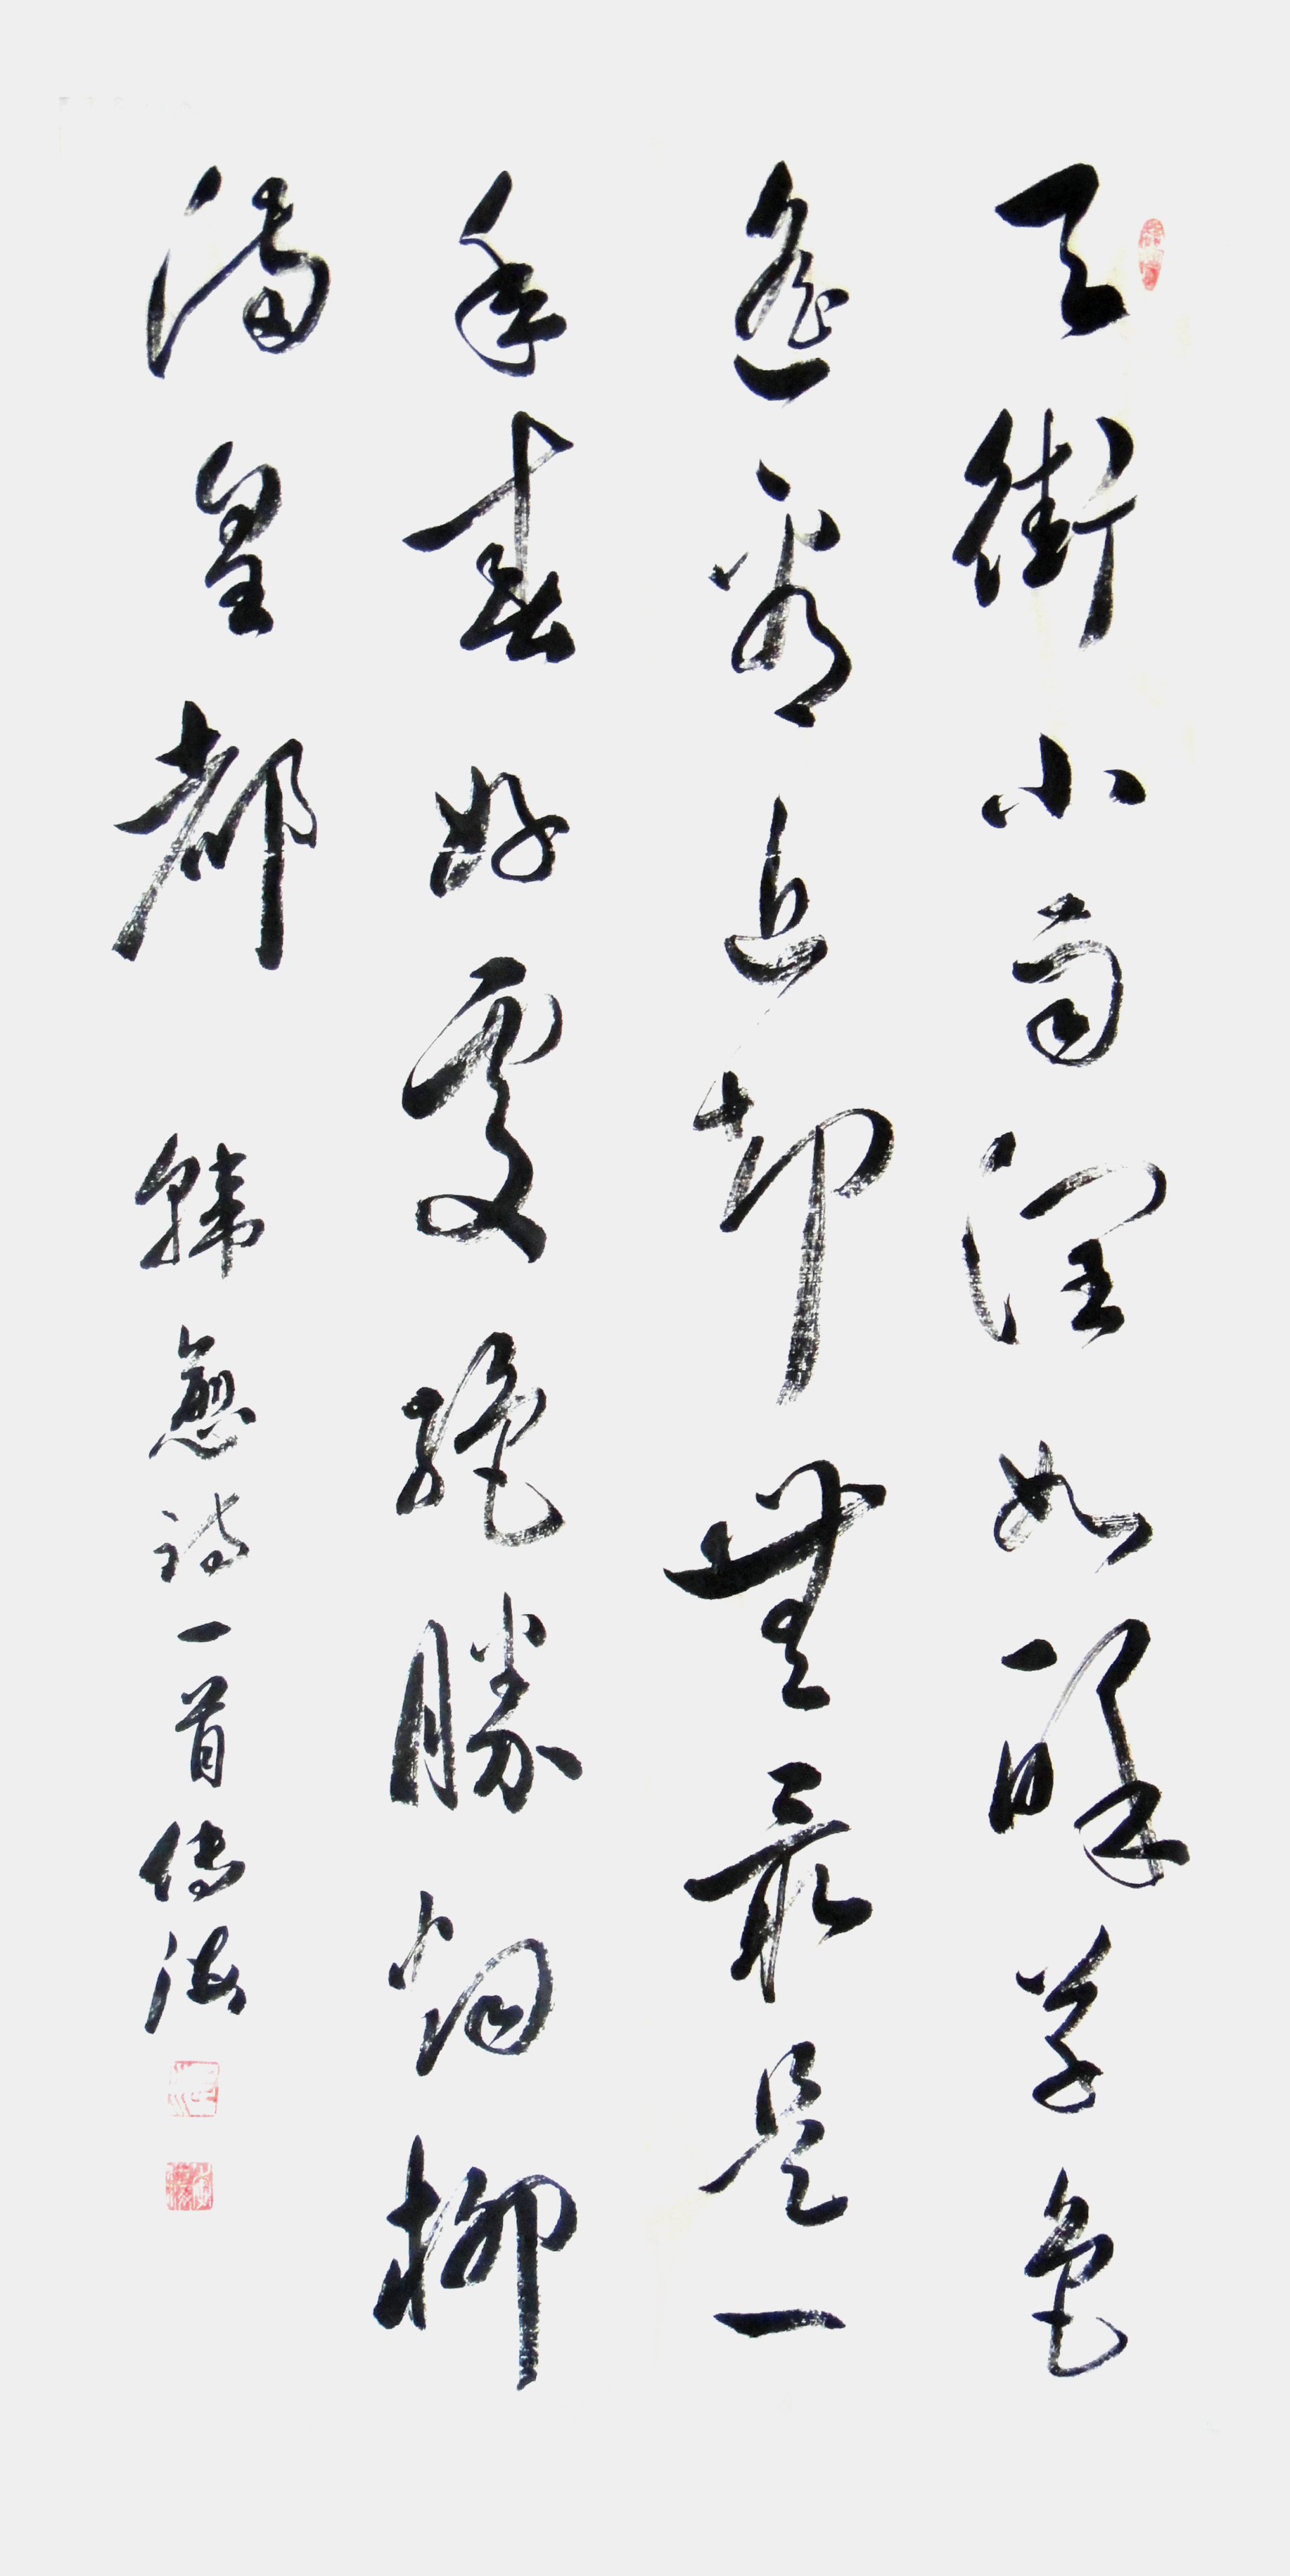 天街小雨润如酥草色
遥看近却無最是一
年春好處絕勝烟柳
滿皇都
韓愈詩一首傳海